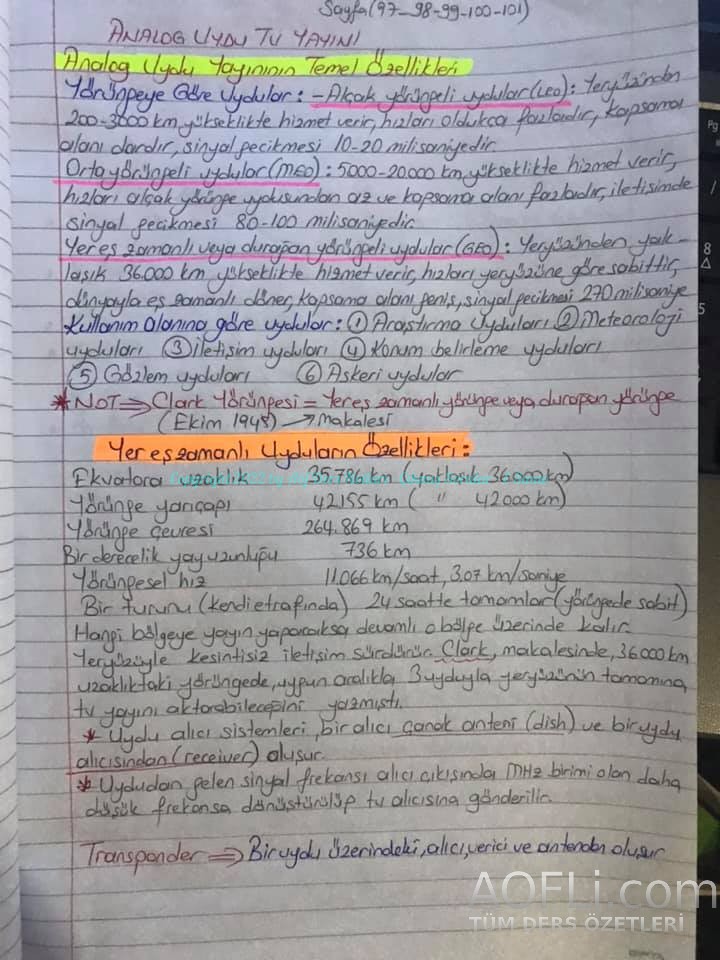 Sayfa (97-98-99-100-101)
ANALOG UYDU TV YAYINI
Analog Uydu Yayınının Temel Özellikleri
Yörüngeye Göre Uydular: -Alçak yörüngeli uydular (LEO): Yeryüzünden
200-3000 km yükseklikte hizmet verir, hızları oldukça fazladır, kapsama
alanı dardır, sinyal gecikmesi 10-20 milisaniyedir.
Orta yörüngeli uydular (MEO): 5000-20000 km yükseklikte hizmet verir,
hızları alçak yörünge uydusundan az ve kapsama alanı fazladır, iletişimde
sinyal gecikmesi 80-100 milisaniyedir.
Yer eş zamanlı veya durağan yörüngeli uydular (GEO): Yeryüzünden yak-
laşık 36000 km yükseklikte hizmet verir, hızları yeryüzüne göre sabittir,
dünyayla eş zamanlı döner, kapsama alanı geniş, sinyal gecikmesi 270 milisaniye
Kullanım alanına göre uydular: ① Araştırma Uyduları ② Meteoroloji
uyduları ③ İletişim uyduları ④ Konum belirleme uyduları
⑤ Gözlem uyduları ⑥ Askeri uydular
* NOT ⇒ Clark Yörüngesi = Yer eş zamanlı yörünge veya durağan yörünge
(Ekim 1945) → makalesi
Yer eş zamanlı Uyduların Özellikleri:
Ekvatora uzaklık 35.786 km (yaklaşık 36000 km)
Yörünge yarıçapı 42.155 km ( " 42000 km)
Yörünge çevresi 264.869 km
Bir derecelik yay uzunluğu 736 km
Yörüngesel hız 11.066 km/saat, 3.07 km/saniye
Bir turunu (kendi etrafında) 24 saatte tamamlar (yörüngede sabit)
Hangi bölgeye yayın yapacaksa devamlı o bölge üzerinde kalır.
Yeryüzüyle kesintisiz iletişim sürdürür. Clark, makalesinde, 36.000 km
uzaklıktaki yörüngede, uygun aralıkla 3 uyduyla yeryüzünün tamamına
tv yayını aktarabileceğini yazmıştı.
* Uydu alıcı sistemleri, bir alıcı çanak anteni (dish) ve bir uydu
alıcısından (receiver) oluşur.
* Uydudan gelen sinyal frekansı alıcı çıkışında MHz birimi olan daha
düşük frekansa dönüştürülüp tv alıcısına gönderilir.
Transponder ⇒ Bir uydu üzerindeki, alıcı, verici ve antenden oluşur
AOFLi.com
TÜM DERS ÖZETLERİ